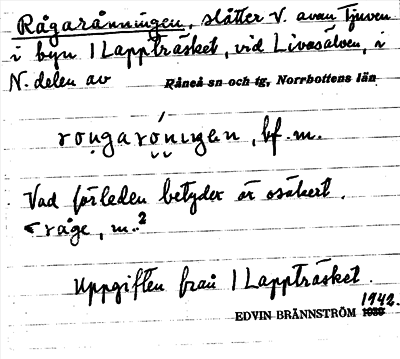 Rågarånningen, slåtter V. ovan Tjuven
i byn 1 Lappträsket, vid Livasälven, i
N. delen av Råneå sn och tg, Norrbottens län
rov̥garón̥ıŋen, bf. m.
Vad förleden betyder är osäkert.
< råge, m.²
Uppgiften från 1 Lappträsket.
1942.
EDVIN BRÄNNSTRÖM 1939